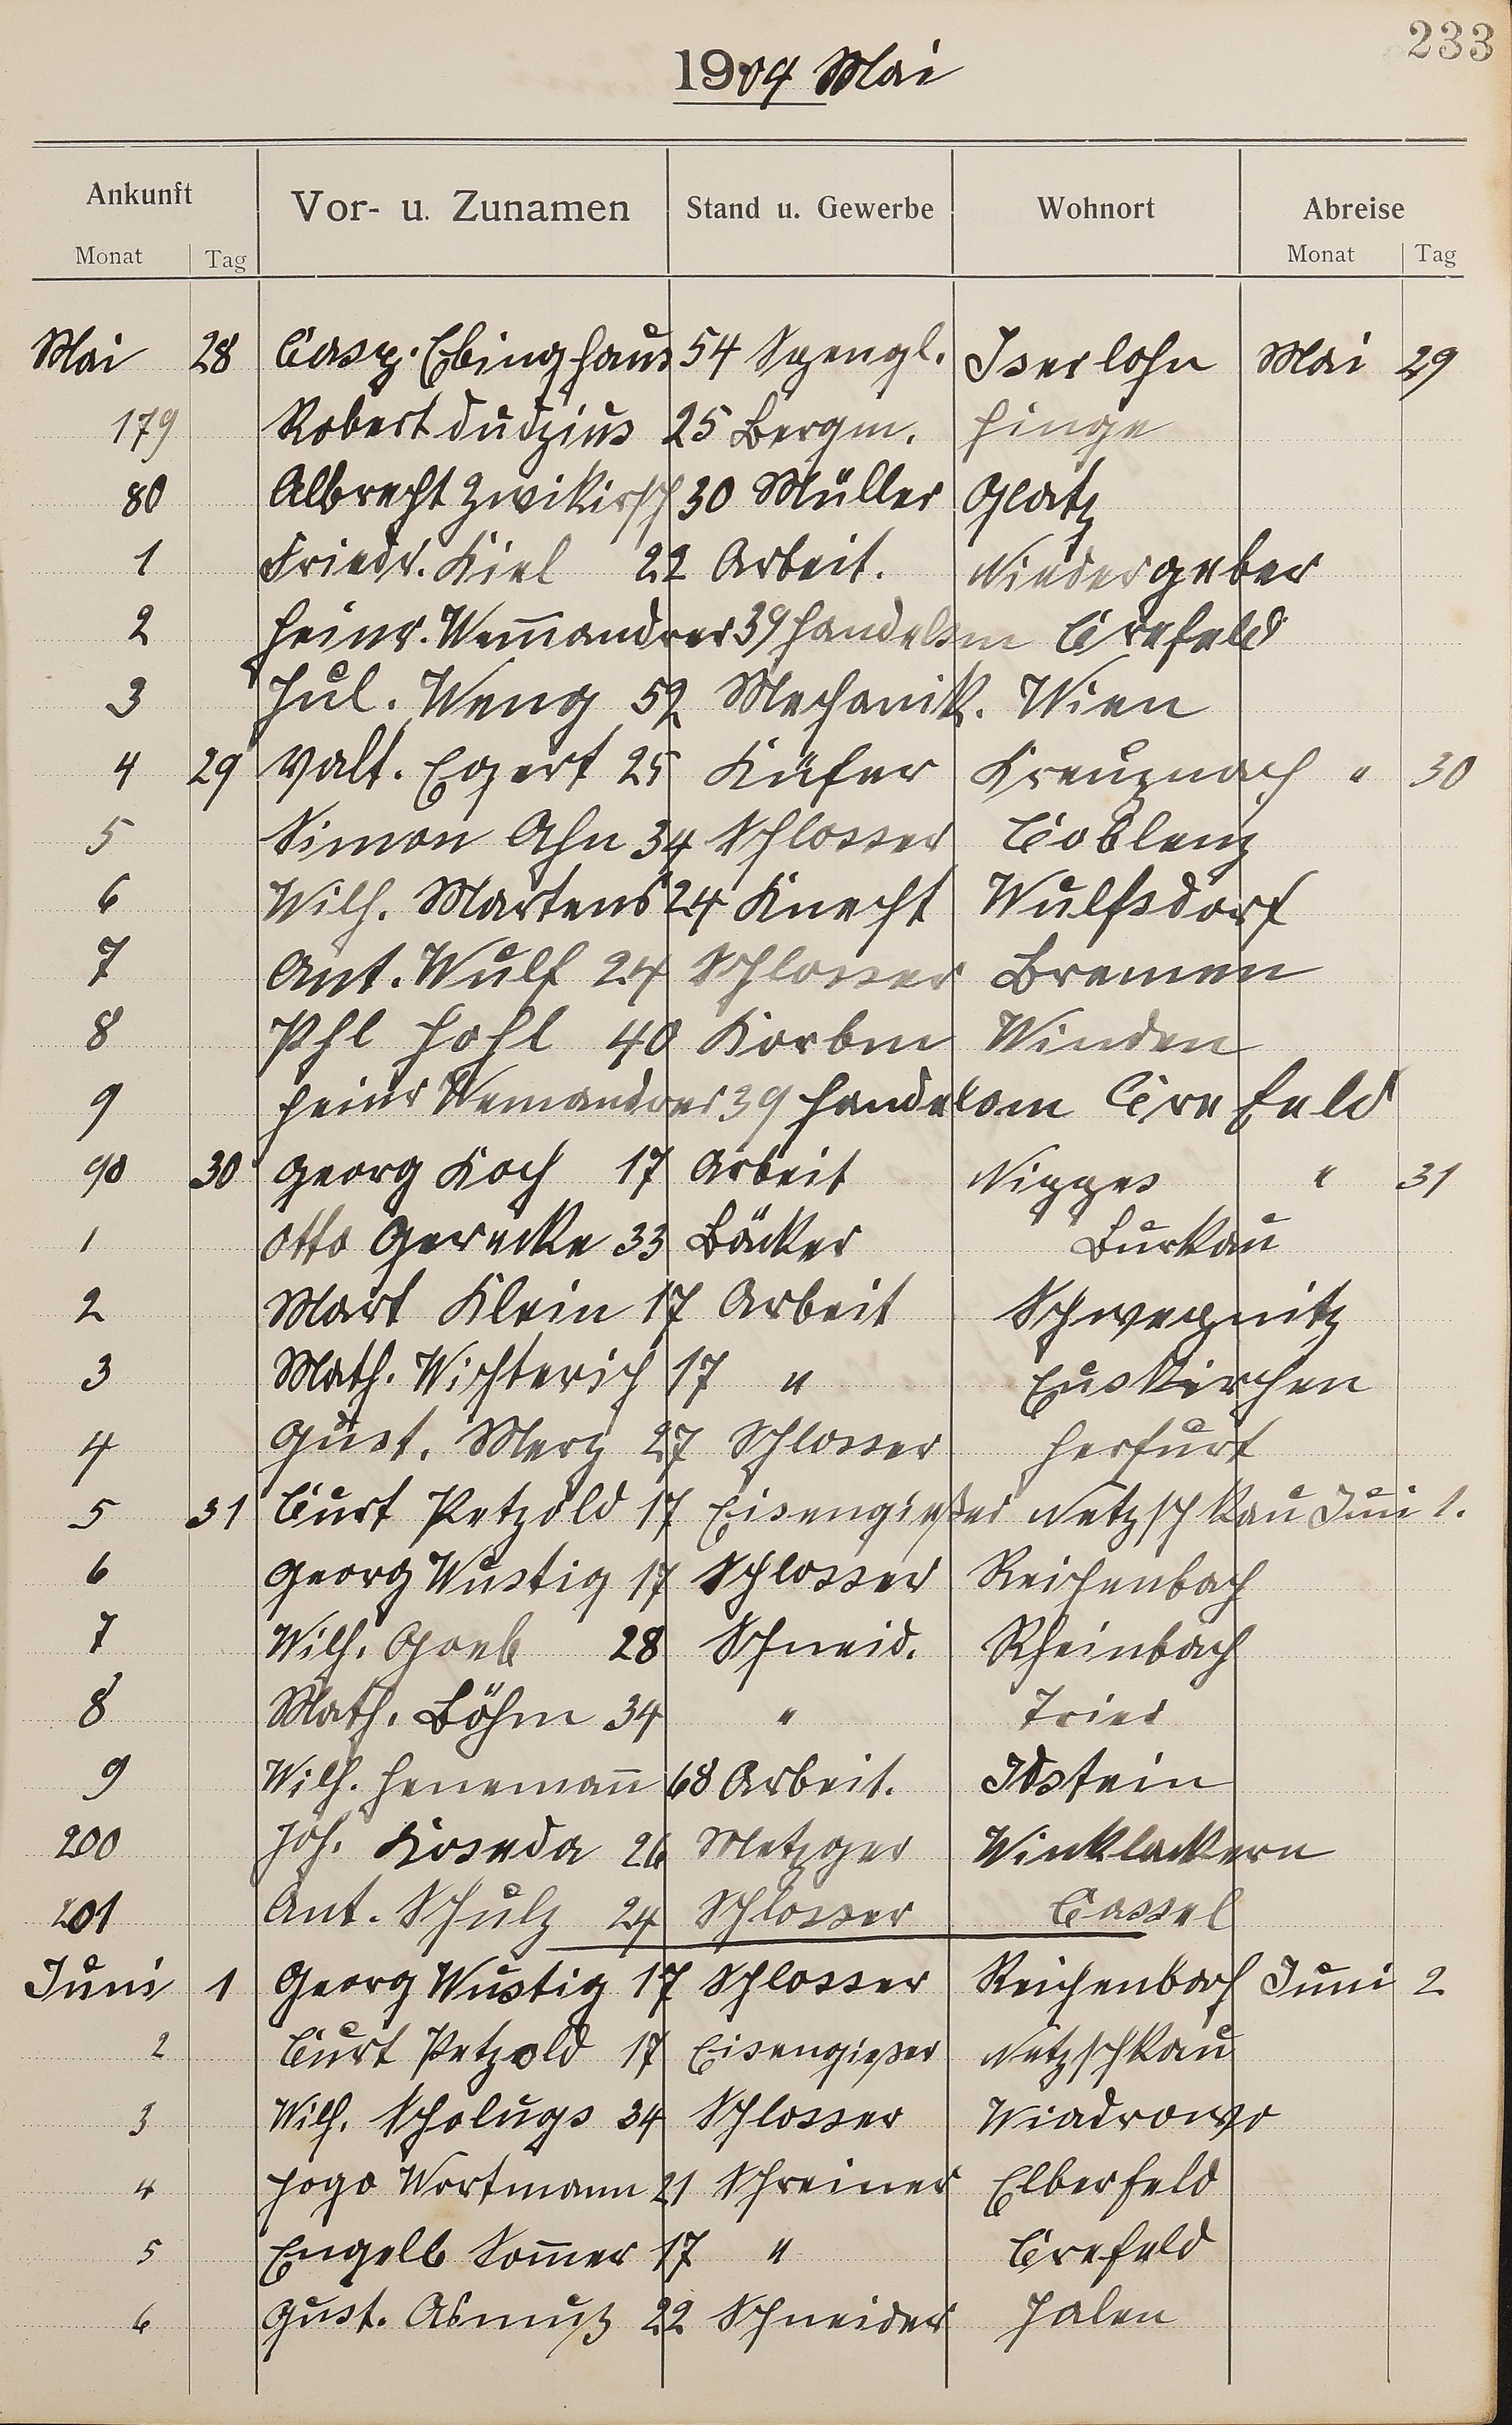 233
1904 Mai
Ankunft Vor- u. Zunamen Stand u. Gewerbe Wohnort Abreise
Monat Tag Monat Tag
Mai 28 Casp. Ebinghaus 54 Spengl. Iserlohn Mai 29
179 Robert Dudzius 25 Bergm. Hinge
80 Albrecht Zwikirsch 30 Müller Glatz
1 Friedr. Kiel 22 Arbeit. Niedergeber
2 Heinr. Wem̅andrer 39 Handelsm Crefeld
3 Jul. Weng 52 Mechanik. Wien
4 29 Valt. Egert 25 Küfer Kreuznach " 30
5 Simon Ahn 34 Schlosser Coblenz
6 Wilh. Martens 24 Knecht Wulfsdorf
7 Ant. Wulf 24 Schlosser Bremen
8 Phl Hohl 40 Korbm Winden
9 Heinr Wemandrer 39 Handelsm Crefeld
90 30 Georg Koch 17 Arbeit Nippes " 31
1 Otto Gericke 33 Bäcker Burkau
2 Mart Klein 17 Arbeit Schwepnitz
3 Math. Wichterich 17 " Euskirchen
4 Gust. Merz 27 Schlosser Herfurt
5 31 Curt Petzold 17 Eisengießer Netzschkau Juni 1.
6 Georg Wustig 17 Schlosser Reichenbach
7 Wilh. Goeb 28 Schneid. Rheinbach
8 Math. Böhm 34 " Trier
9 Wilh. Heneman̅ 68 Arbeit. Idstein
200 Joh. Koseda 26 Metzger Winklackern
201 Ant. Schulz 24 Schlosser Cassel
Juni 1 Georg Wustig 17 Schlosser Reichenbach Juni 2
2 Curt Petzold 17 Eisengießer Netzschkau
3 Wilh. Scholugs 34 Schlosser Wiadrowo
4 Hogo Wortmann 21 Schreiner Elberfeld
5 Engelb Som̅er 17 " Crefeld
6 Gust. Asmuß 22 Schneider Halen